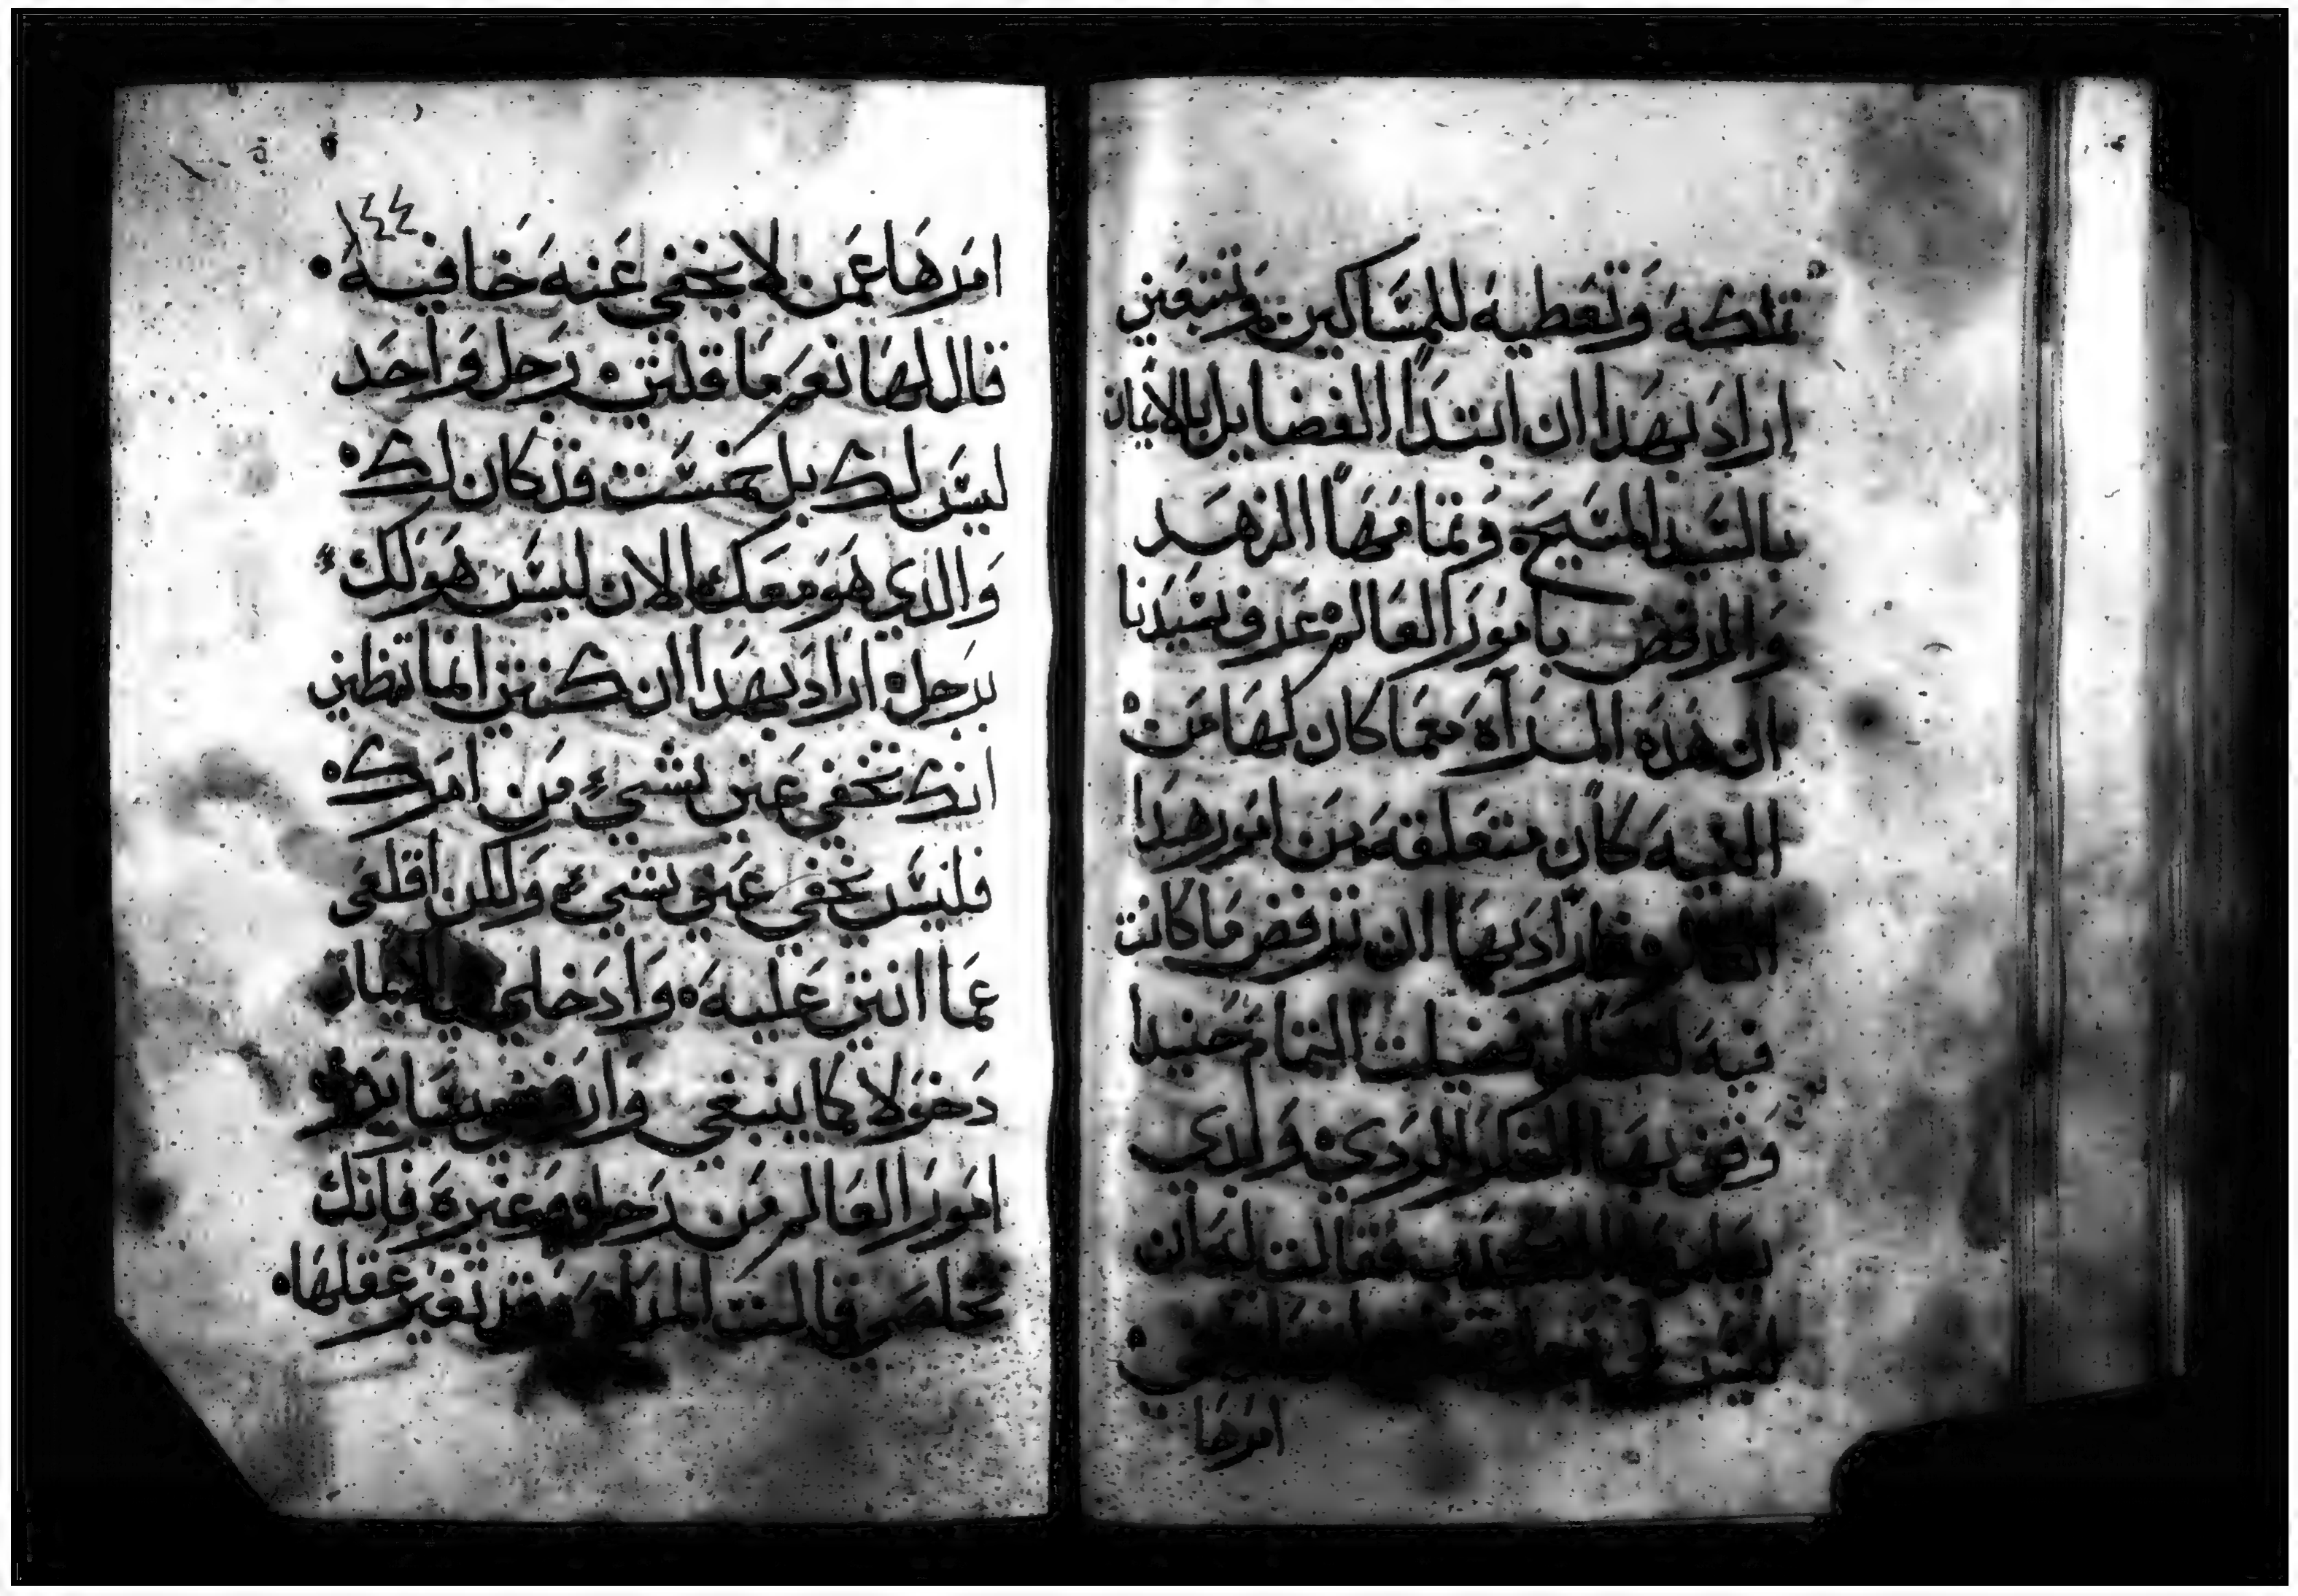 تملكه وتعطيه للمساكين وتتبعين
اراد بهدا ان ابتدا الفضايل بالايمان
بالسيد المسيح وتمامها الزهد
والرفض بامور العالم عرف سيدنا
ان هده المرآة معما كان لها من
النيه كان متعلقه من امور هدا
اراد بها ان ترفض ما كانت
فيه فضيلت التمام حنيدا
وقف بها الفكر الردي ولدي
فقالت له ان
ليس لي
امرها
١٤٤
امرها عمن لا يخفي عنه خافيه
قال لها نعم ما قلتي رجل واحد
ليس لك بل خمست قد كان لك
والدي هو معك الان ليس هو لك
برجل اراد بهدا ان كنتي انما تظني
انك تخفي عني شي من امرك
فليس يخفي عني شي ولكن اقلعي
عما انتي عليه وادخلي بالايمان
دخولا كما ينبغي وارفضي
امور العالم من رجل وغيره فانك
تخلصي قالت المراه وقد تغير عقلها